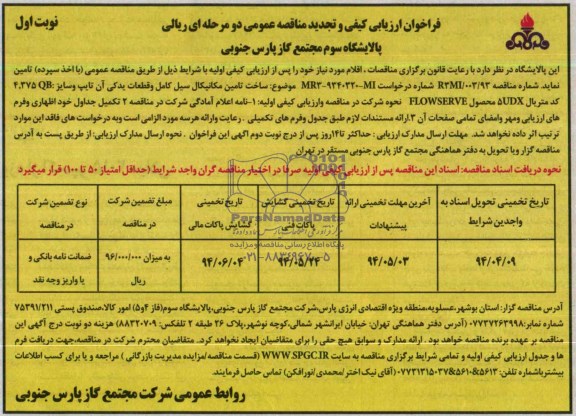 فراخوان ارزیابی کیفی و تجدید مناقصه عمومی دو مرحله ای ریالی
نوبت اول
پالایشگاه سوم مجتمع گاز پارس جنوبی
این پالایشگاه در نظر دارد با رعایت قانون برگزاری مناقصات ، اقلام مورد نیاز خود را پس از ارزیابی کیفی اولیه با شرایط ذیل از طریق مناقصه عمومی (با اخذ سپرده) تامین
نماید. شماره مناقصه R3MI/003/93 شماره درخواست MR3-9340320-MI موضوع: ساخت تامین مکانیکال سیل کامل وقطعات یدکی آن تایپ وسایز :4.375 QB
کد متریال 5UDX محصول FLOWSERVE نحوه شرکت در مناقصه وارزیابی کیفی اولیه: ۱-نامه اعلام آمادگی شرکت در مناقصه ۲ تکمیل جداول خود اظهاری وفرم
های ارزیابی ومهر وامضای تمامی صفحات آن ۳.ارائه مستندات لازم طبق جدول وفرم های تکمیلی . رعایت وارائه هرسه مورد الزامی است وبه درخواست های فاقد این موارد
ترتیب اثر داده نخواهد شد. مهلت ارسال مدارک ارزیابی : حداکثر تا۱۴روز پس از درج نوبت دوم آگهی این فراخوان . نحوه ارسال مدارک ارزیابی: از طریق پست به آدرس
مناقصه گزار ویا تحویل به دفتر هماهنگی مجتمع گاز پارس جنوبی مستقر در تهران
نحوه دریافت اسناد مناقصه: اسناد این مناقصه پس از ارزیابی کیفی اولیه صرفا در اختیار مناقصه گران واجد شرایط (حداقل امتیاز ۵۰ تا ۱۰۰) قرار میگیرد
تاریخ تخمینی تحویل اسناد به واجدین شرایط
آخرین مهلت تخمینی ارائه پیشنهادات
تاریخ تخمینی گشایش پاکات فنی
تاریخ تخمینی گشایش پاکات مالی
مبلغ تضمین شرکت در مناقصه
نوع تضمین شرکت در مناقصه
۹۴/۰۴/۰۹
۹۴/۰۵/۰۳
۹۴/۰۵/۲۴
۹۴/۰۶/۰۴
به میزان ۹۶/۰۰۰/۰۰۰ ریال
ضمانت نامه بانکی و یا واریز وجه نقد
ParsNamadData
پایگاه اطلاع رسانی مناقصه و مزایده
۰۲۱-۸۸۳۴۹۶۷۰-۵
آدرس مناقصه گزار: استان بوشهر،عسلویه،منطقه ویژه اقتصادی انرژی پارس،شرکت مجتمع گاز پارس جنوبی،پالایشگاه سوم(فاز ۴و۵) امور کالا،صندوق پستی ۷۵۳۹۱/۲۱۱
شماره نمابر:۰۷۷۳۷۲۶۳۹۹۸ (آدرس دفتر هماهنگی تهران: خیابان ایرانشهر شمالی،کوچه نوشهر،پلاک ۲۶ طبقه ۲ تلفکس: ۸۸۳۲۰۷۰۹) هزینه دو نوبت درج آگهی این
مناقصه بر عهده برنده مناقصه خواهد بود . ارائه مدارک و سوابق هیچ حقی را برای متقاضیان ایجاد نخواهد کرد. متقاضیان محترم شرکت در مناقصه،جهت دریافت فرم
ها و جدول ارزیابی کیفی اولیه و تمامی شرایط برگزاری مناقصه به سایت WWW.SPGC.IR (قسمت مناقصه/مزایده مدیریت بازرگانی ) مراجعه و یا برای کسب اطلاعات
بیشترباشماره تلفن: ۵۶۱۳&۵۶۱۰&۰۷۷۳۱۳۱۵۰۳۷ (آقای نیک اختر/محمدی/نورافکن) تماس حاصل فرمایند.
روابط عمومی شرکت مجتمع گاز پارس جنوبی